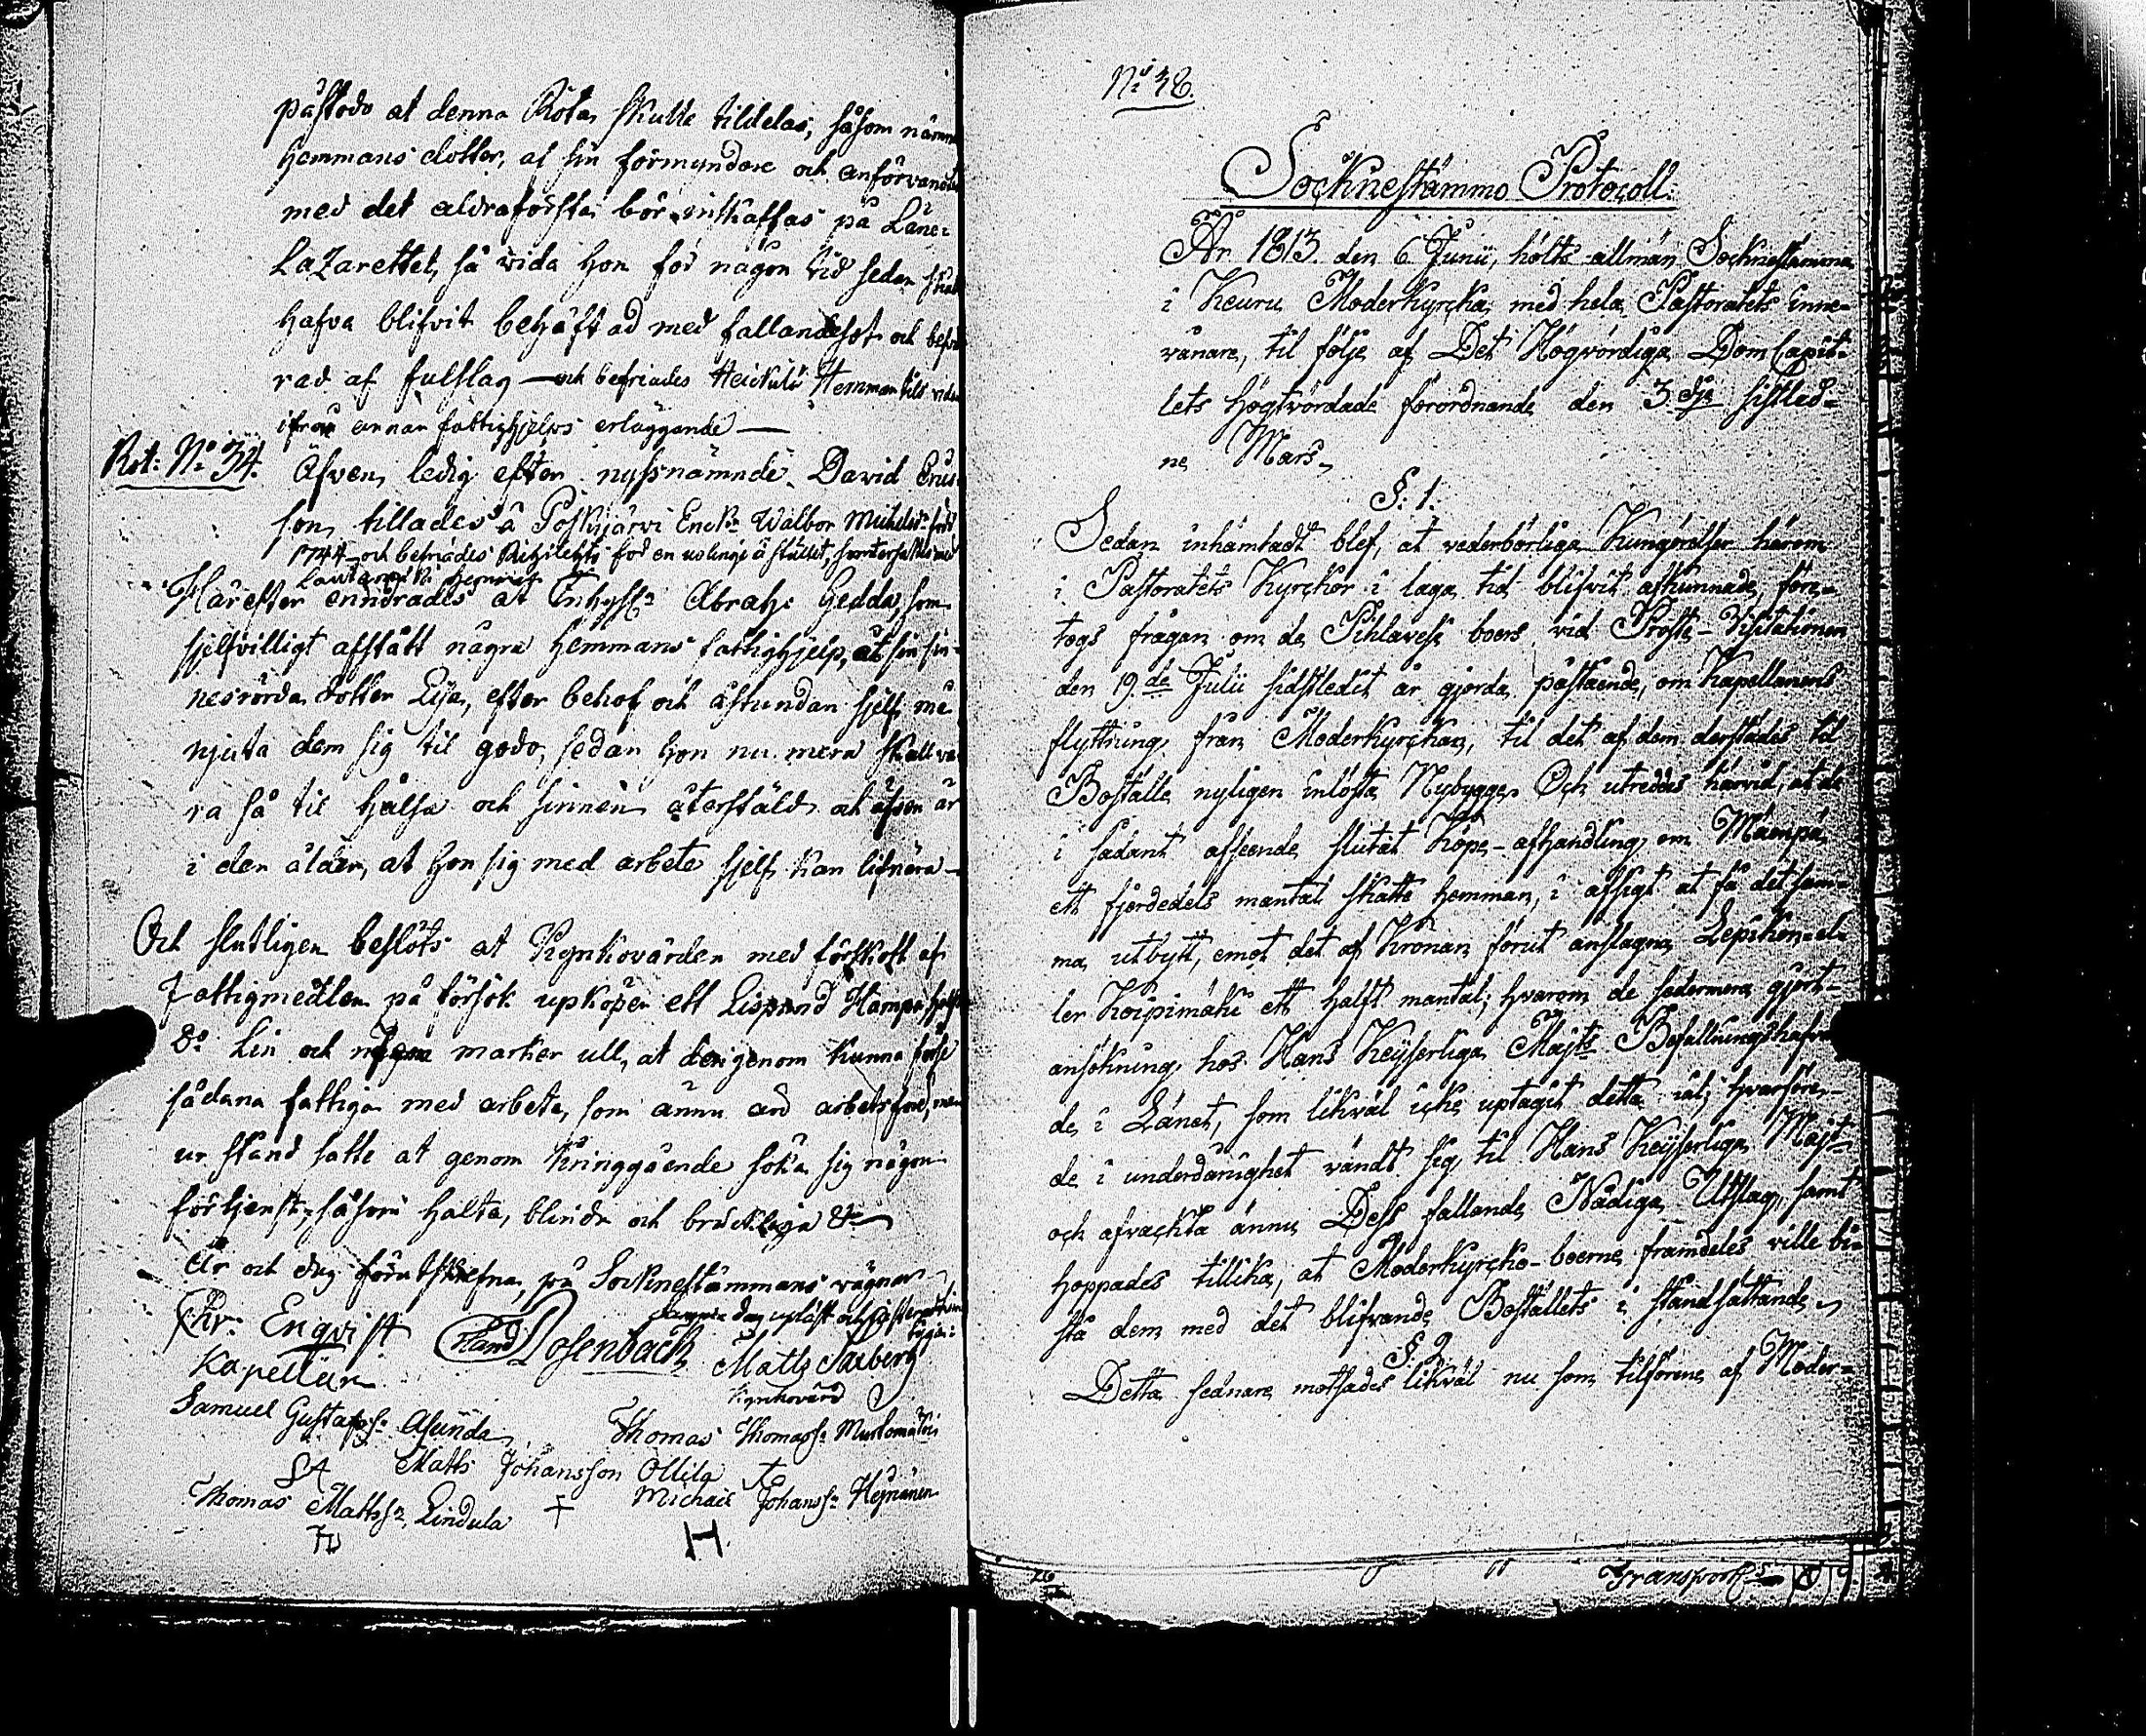 påstods at denna Rota skulle tildelas, såsom nämn
Hemmans dotter, af sin förmyndare och anförvandt
med det aldraförsta bör inskaffas på Läne-
Lazarettet, så vida hon för någon tid sedan skal
hafva blifvit behäftad med fallandesot och besvä
rad af fulslag — och befriades Heikilä Hemman tils vidare
ifrån annan fattighjelps erläggande —
Rot: No 34. Äfven ledig efter nyssnämnde David Erics
son, tillades å Poskijärvi Enk: Walbor Michelsd:r född
1744 och befriades för en uslinge å stället,
Härefter at Inhyss: Abrah: Gedda, som
sjelfvilligt afstått några Hemmans fattighjelp, åt sin sin-
nesrörda dotter Eija, efter behof och åstundan sjelf må
njuta dem sig til godo, sedan hon nu mera skall va-
ra så til hälsa och sinnen återstäld, at äfven är
i den ålder, at hon sig med arbete sjelf kan lifnära —
Och slutligen beslöts at Kyrkovärden med förskott af
Fattigmedlen på försök upköper ett Lispund Hampa,
D:o Lin och några marker ull, at derigenom kunna förse
sådana fattiga med arbete, som ännu äro arbetsföre, men
ur stånd satte at genom kringgående söka sig någon
förtjenst, såsom halta, blinda och bräckliga &c
År och dag förutskrefne, på Socknestämmans vägnar
samma dag upläst och justerat
Chr: Enqvist Rand Rosenback Matts Saxberg
Kapellan Kyrkovärd
Samuel Gustafss: Asunda Thomas Thomass: Mustomäki
SA Matts Johansson Ollila
Thomas Mattss: Lindula Michael Johanss: Heinänen
H
No 38.
Socknestämmo Protocoll.
År 1813. den 6 Junii, hölts allmän Socknestämma
i Keuru Moderkyrcka med hela Pastoratets inne-
vånare, til följe af Det Högvördiga Dom Capit-
lets högtvördade förordnande den 3 dje sistled-
ne Mars.
§. 1.
Sedan inhämtadt blef, at vederbörliga Kungörelser härom
i Pastoratets Kyrckor i laga tid blifvit afkunnade, före-
togs frågan om de Pihlavesi boers vid Prosts-Visitationen
den 19.de Julii sidstledit år gjorda påstående, om Kapellanens
flyttning från Moderkyrckan, til det af dem derstädes til
Boställe nyligen inlösta Nybygge. Och utreddes härvid, at de
i sådant afseende slutat Köpe-afhandling om Mäenpä,
ett fjerdedels mantal skatte hemman, i afsigt at få det sam-
ma utbytt, emot det af Kronan förut anslagna Lepikon el-
ler Koipimäki ett halft mantal; hvarom de sedermera gjort
ansökning hos Hans Keijserliga Majts Befallningshafvan
de i Länet, som likväl icke uptagit detta mål; hvarföre
de i underdånighet vändt sig til Hans Keijserliga Majt
och afvackta ännu Dess fallande Nådiga Utslag, samt
hoppades tillika, at Moderkyrcko-boerne framdeles ville bi-
stå dem med det blifvande Boställets i ståndsättande.
§. 2.
Detta senare motsades likväl nu som tilförene af Moder-
26
Transport